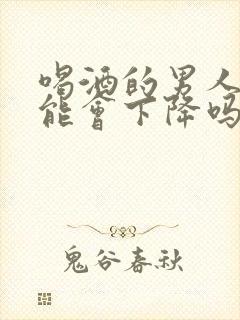 喝酒的男人
能會下降吗
鬼谷春秋